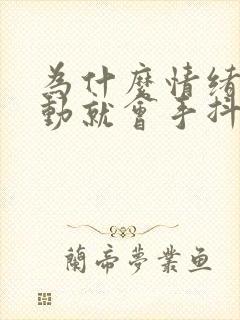 為什麼情緒
動就會手抖
蘭帝夢業魚